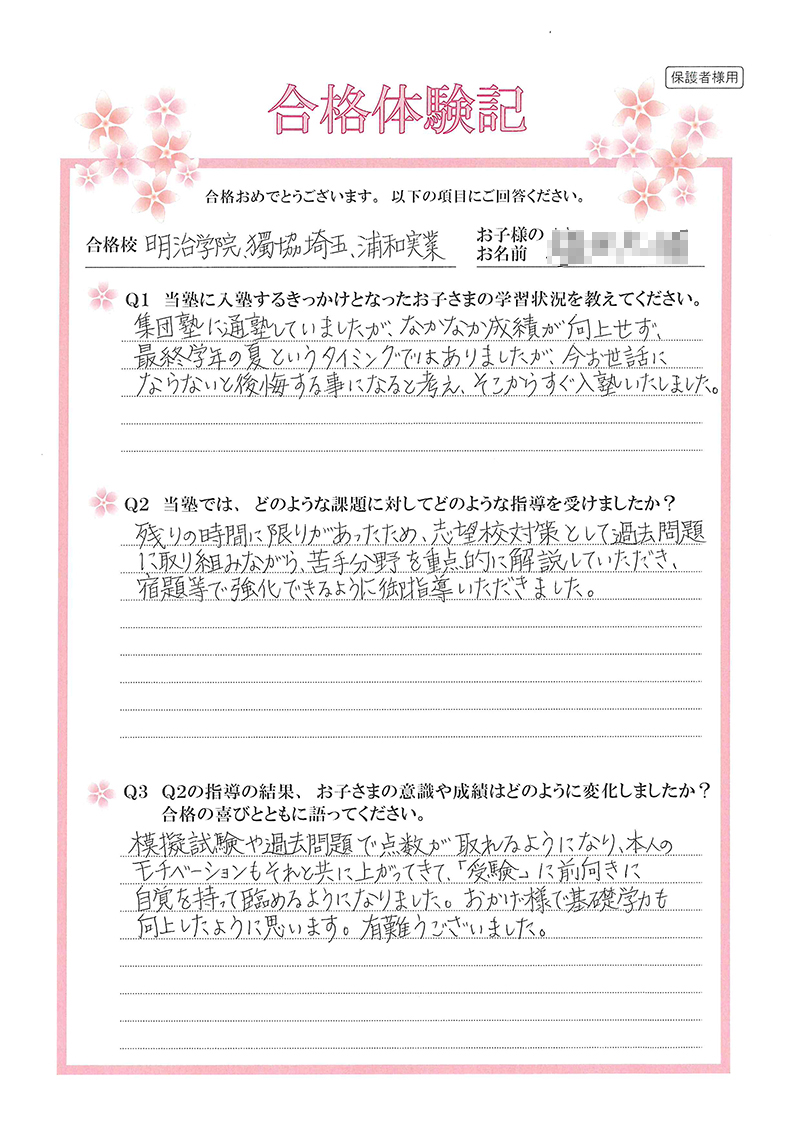 保護者様用
合格体験記
合格おめでとうございます。以下の項目にご回答ください。
合格校 明治学院、獨協埼玉、浦和実業
お子様の
お名前
Q1 当塾に入塾するきっかけとなったお子さまの学習状況を教えてください。
集団塾に通塾していましたが、なかなか成績が向上せず、
最終学年の夏というタイミングではありましたが、今お世話に
ならないと後悔する事になると考え、そこからすぐ入塾いたしました。
Q2 当塾では、どのような課題に対してどのような指導を受けましたか？
残りの時間に限りがあったため、志望校対策として過去問題
に取り組みながら、苦手分野を重点的に解説していただき、
宿題等で強化できるように御指導いただきました。
Q3 Q2の指導の結果、お子さまの意識や成績はどのように変化しましたか？
合格の喜びとともに語ってください。
模擬試験や過去問題で点数が取れるようになり、本人の
モチベーションもそれと共に上がってきて、「受験」に前向きに
自覚を持って臨めるようになりました。おかげ様で基礎学力も
向上したように思います。有難うございました。